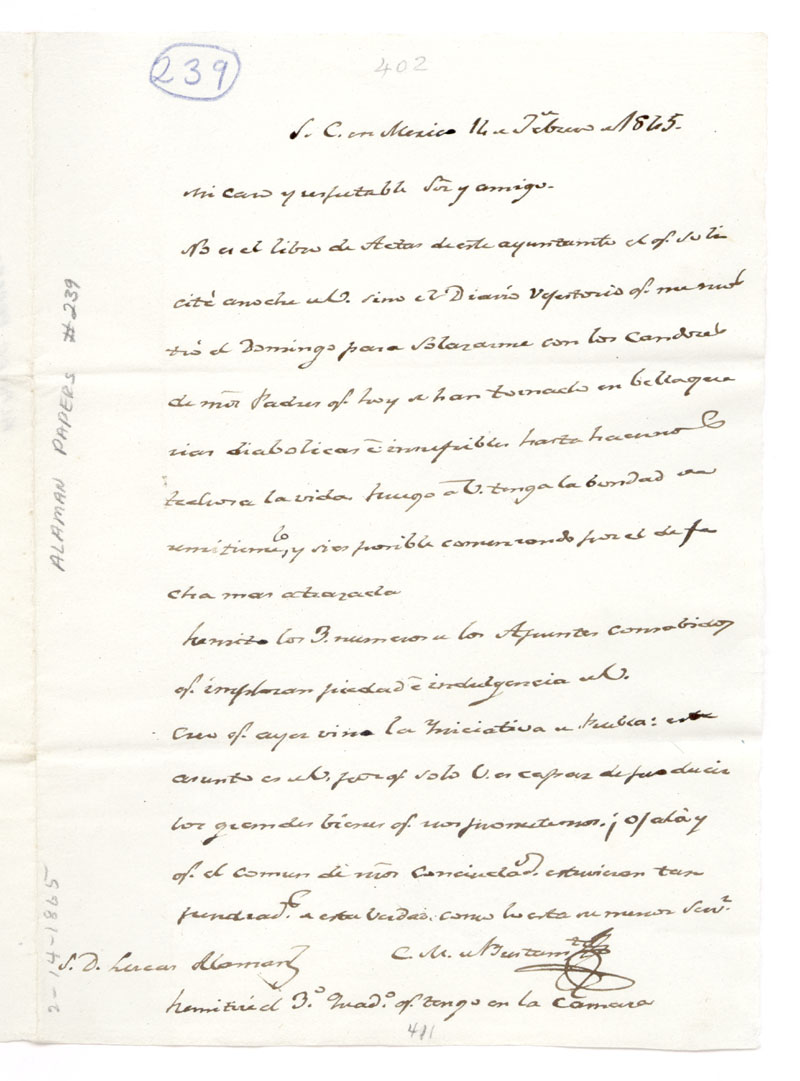 239
402
S. C. en Mexico 14 de Febrero de 1845.
Mi caro y respetable Sor y amigo.
No es el libro de Actas de este ayuntamto el q. soli
cité anoche a V. sino el Diario q. me mos
tró el Domingo para solazarme con los candores
de ntros Padres q. hoy se han tornado en bellaque
rias diabolicas é insufribles hasta hacernos
tediosa la vida. Ruego á V. tenga la bondad de
remitirmelo, y si es posible comenzando por el de fe
cha mas atrazada
Remito los 3. numeros de los Apuntes consabidos
q. imploran piedad é indulgencia de V.
Creo q. ayer vino la Iniciativa de Puebla: este
asunto es de V. por q. solo V. es capaz de producir
los grandes bienes q. nos prometemos. ¡Ojalá y
q. el comun de ntros Conciudads. estuvieran tan
penetrads. de esta verdad, como lo esta su menor Servr.
C. M. de Bustamte
S. D. Lucas Alaman
Remitiré el 3.o Quado. q. tengo en la Cámara
411
ALAMAN PAPERS #239
2-14-1865